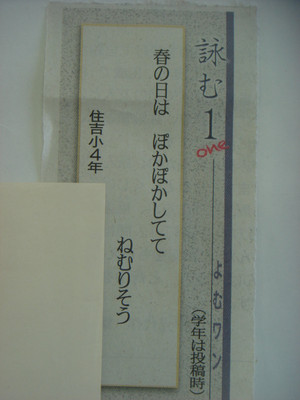 詠む1
one
よむワン
（学年は投稿時）
春の日は　ぽかぽかしてて
ねむりそう
住吉小4年